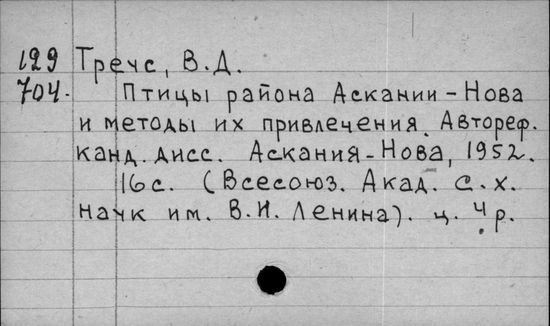 129 Тречс, В.Д.
704. Птицы района Аскании-Нова
и методы их привлечения. Автореф.
канд. дисс. Аскания-Нова, 1952.
16с. (Всесоюз. Акад. с.х.
наук им. В.И. Ленина). ц. 4 р.